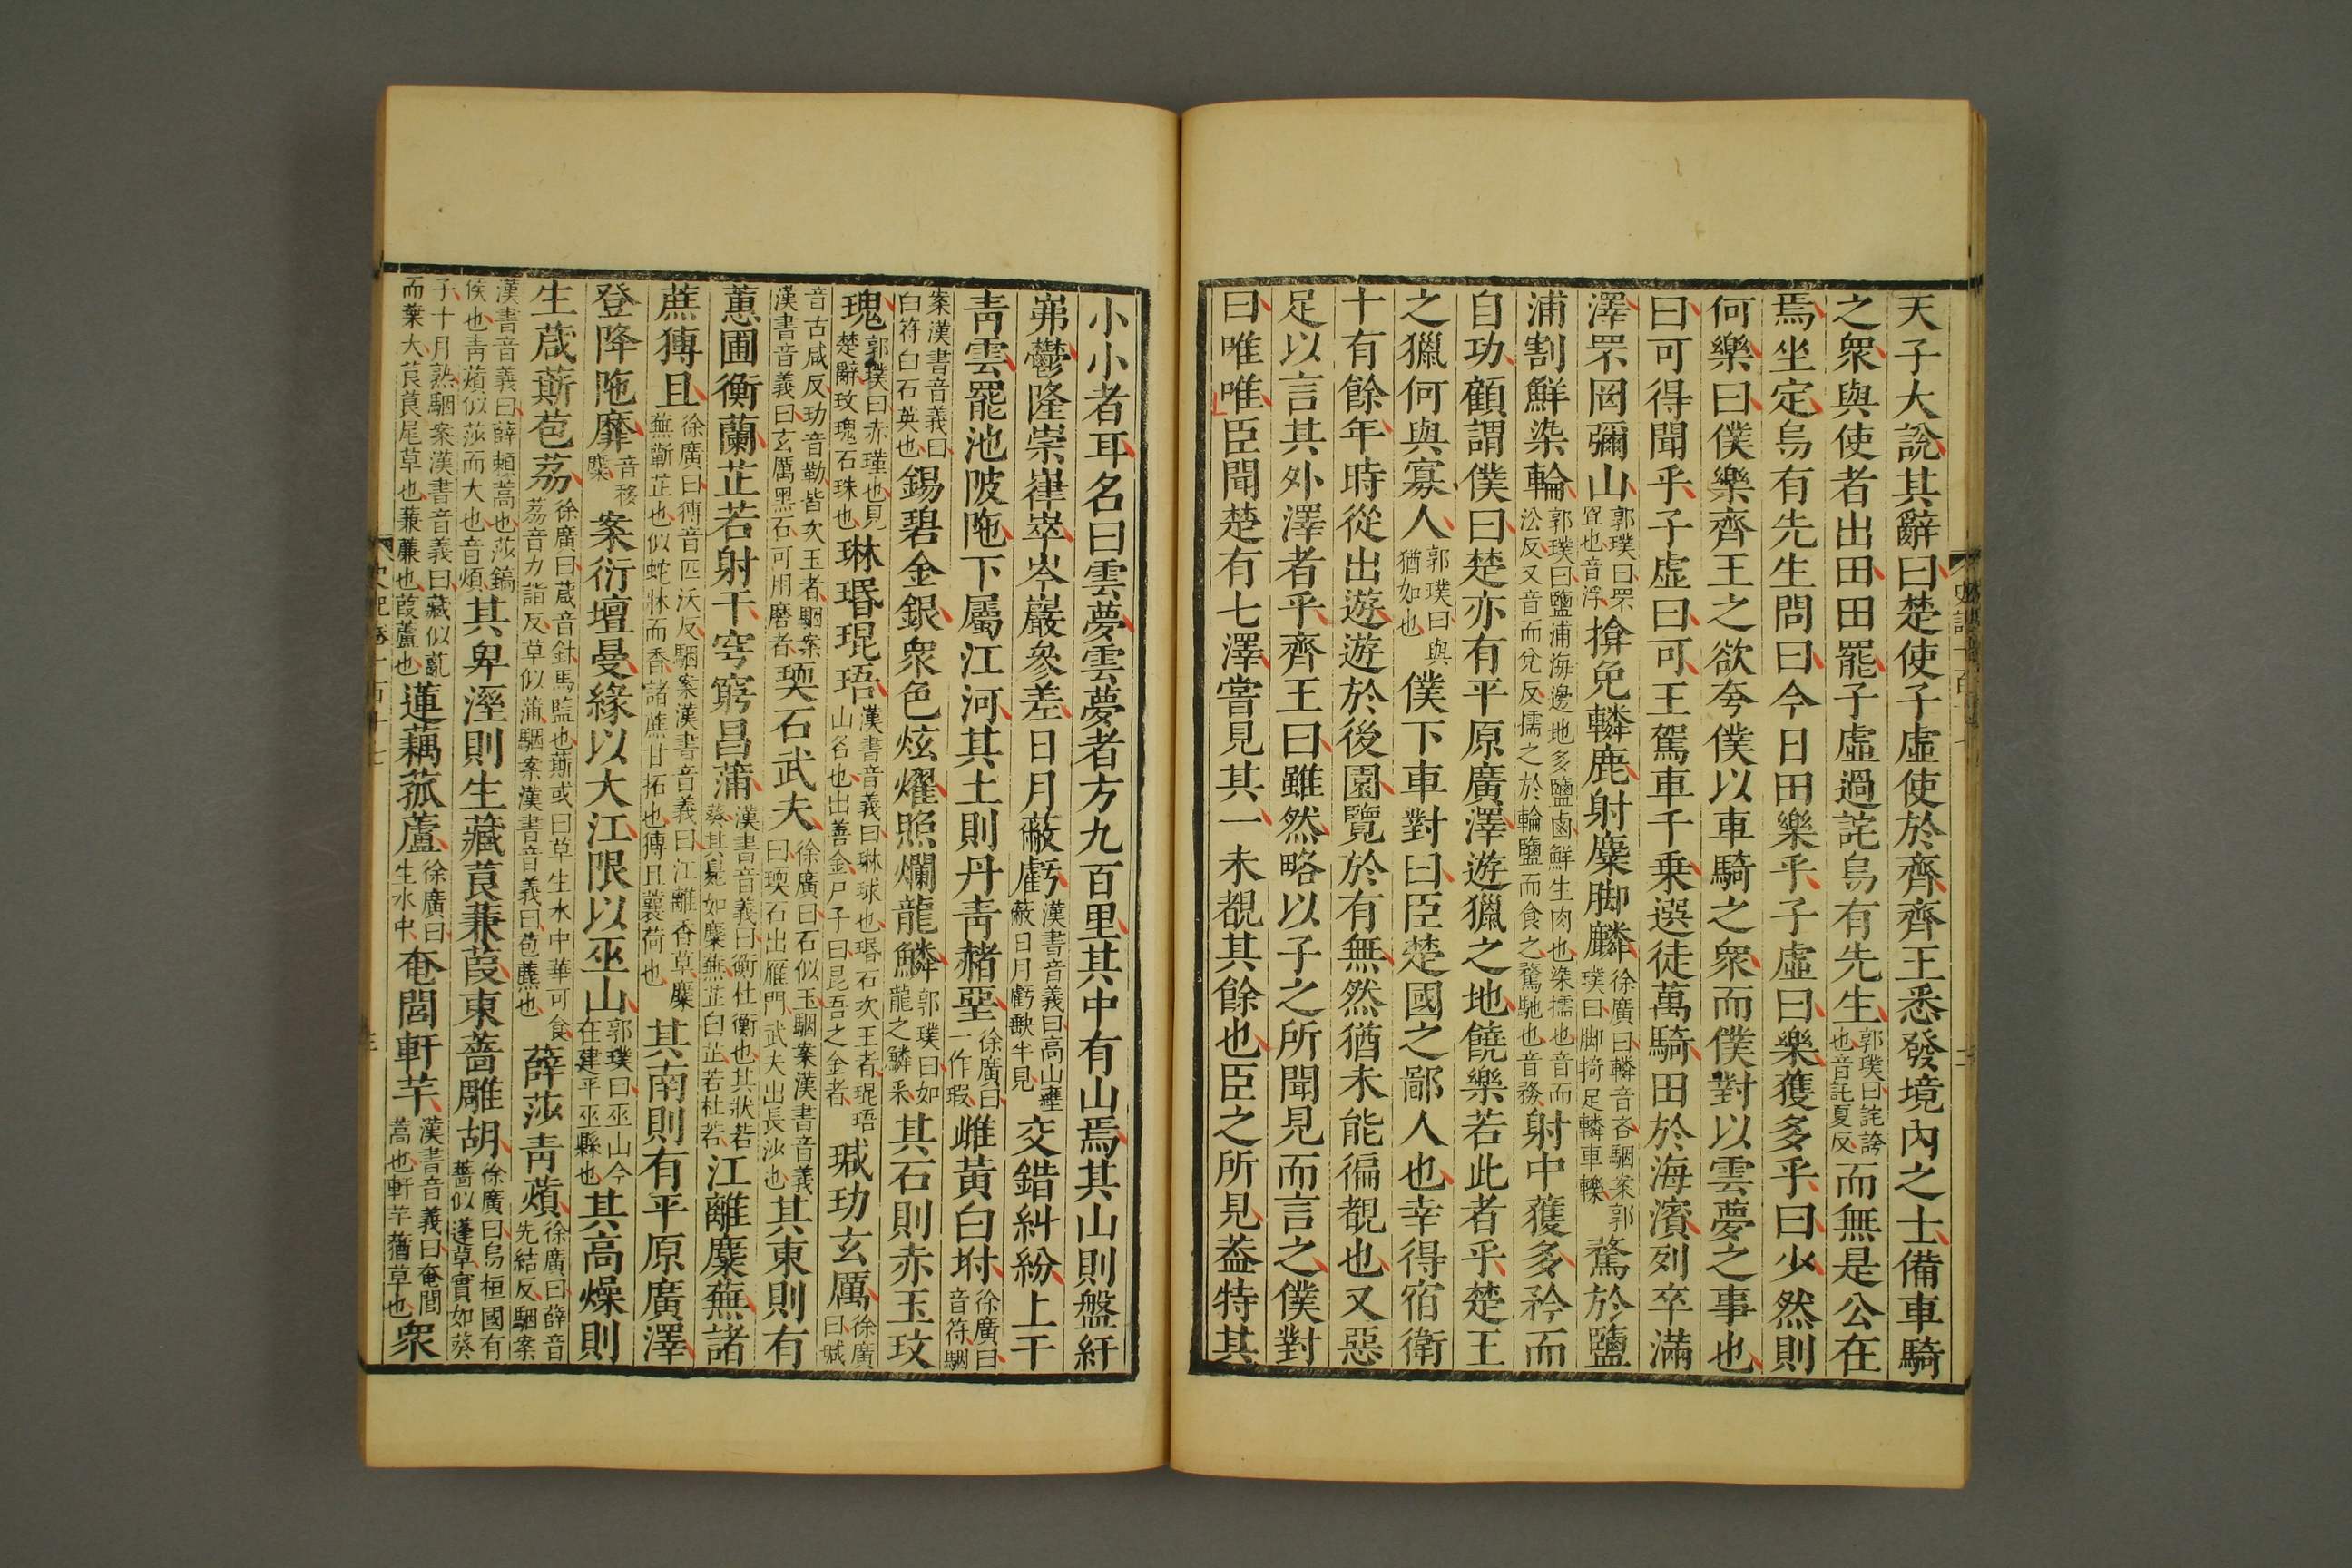 天子大說其辭曰楚使子虛使於齊齊王悉發境內之士備車騎
之衆與使者出田田罷子虛過詫烏有先生郭璞曰詫誇也音託夏反而無是公在
焉坐定烏有先生問曰今日田樂乎子虛曰樂獲多乎曰少然則
何樂曰僕樂齊王之欲夸僕以車騎之衆而僕對以雲夢之事也
曰可得聞乎子虛曰可王駕車千乗選徒萬騎田於海濱列卒滿
澤罘罔彌山郭璞曰罘罝也音浮揜免轔鹿射麋脚麟徐廣曰轔音吝駰案郭璞曰脚掎足轔車轢騖於鹽
浦割鮮染輪郭璞曰鹽浦海邊地多鹽鹵鮮生肉也染擩也音而沿反又音而兊反擩之於輪鹽而食之騖馳也音務射中獲多矜而
自功顧謂僕曰楚亦有平原廣澤遊獵之地饒樂若此者乎楚王
之獵何與寡人郭璞曰與猶如也僕下車對曰臣楚國之鄙人也幸得宿衛
十有餘年時從出遊遊於後園覽於有無然猶未能徧覩也又惡
足以言其外澤者乎齊王曰雖然略以子之所聞見而言之僕對
曰唯唯臣聞楚有七澤嘗見其一未覩其餘也臣之所見葢特其
小小者耳名曰雲夢雲夢者方九百里其中有山焉其山則盤紆
岪鬱隆崇嵂崒岑巖參差日月蔽虧漢書音義曰高山壅蔽日月虧缺半見交錯糾紛上干
青雲罷池陂陁下屬江河其土則丹青赭堊徐廣曰一作瑕雌黃白坿徐廣曰音符駰
案漢書音義曰白符白石英也錫碧金銀衆色炫燿照爛龍鱗郭璞曰如龍之鱗采其石則赤玉玫
瑰郭璞曰赤瑾也見楚辭玫瑰石珠也琳瑉琨珸漢書音義曰琳球也瑉石次王者琨珸山名也出善金尸子曰昆吾之金者瑊玏玄厲徐廣曰瑊
音古咸反玏音勒皆次玉者駰案漢書音義曰玄厲黑石可用磨者瑌石武夫徐廣曰石似玉駰案漢書音義曰瑌石出雁門武夫出長沙也其東則有
蕙圃衡蘭芷若射干穹窮昌蒲漢書音義曰衡杜衡也其狀若葵其臭如麋蕪芷白芷若杜若江離麋蕪諸
蔗猼且徐廣曰猼音匹沃反駰案漢書音義曰江離香草麋蕪蘄芷也似蛇牀而香諸蔗甘拓也猼且蘘荷也其南則有平原廣澤
登降陁靡音移糜案衍壇曼緣以大江限以巫山郭璞曰巫山今在建平巫縣也其高燥則
生葴蘄苞荔徐廣曰葴音針馬監也蘄或曰草生水中華可食荔音力詣反草似蒲駰案漢書音義曰苞藨也薛莎青薠徐廣曰薛音先結反駰案
漢書音義曰薛賴蒿也莎鎬侯也青薠似莎而大也音煩其卑溼則生藏莨蒹葭東蘠雕胡徐廣曰烏桓國有蘠似蓬草實如葵
子十月熟駰案漢書音義曰藏似薍而葉大莨莨尾草也蒹薕也葭蘆也蓮藕菰蘆徐廣曰生水中奄閭軒芋漢書音義曰奄閭蒿也軒芋蕕草也衆